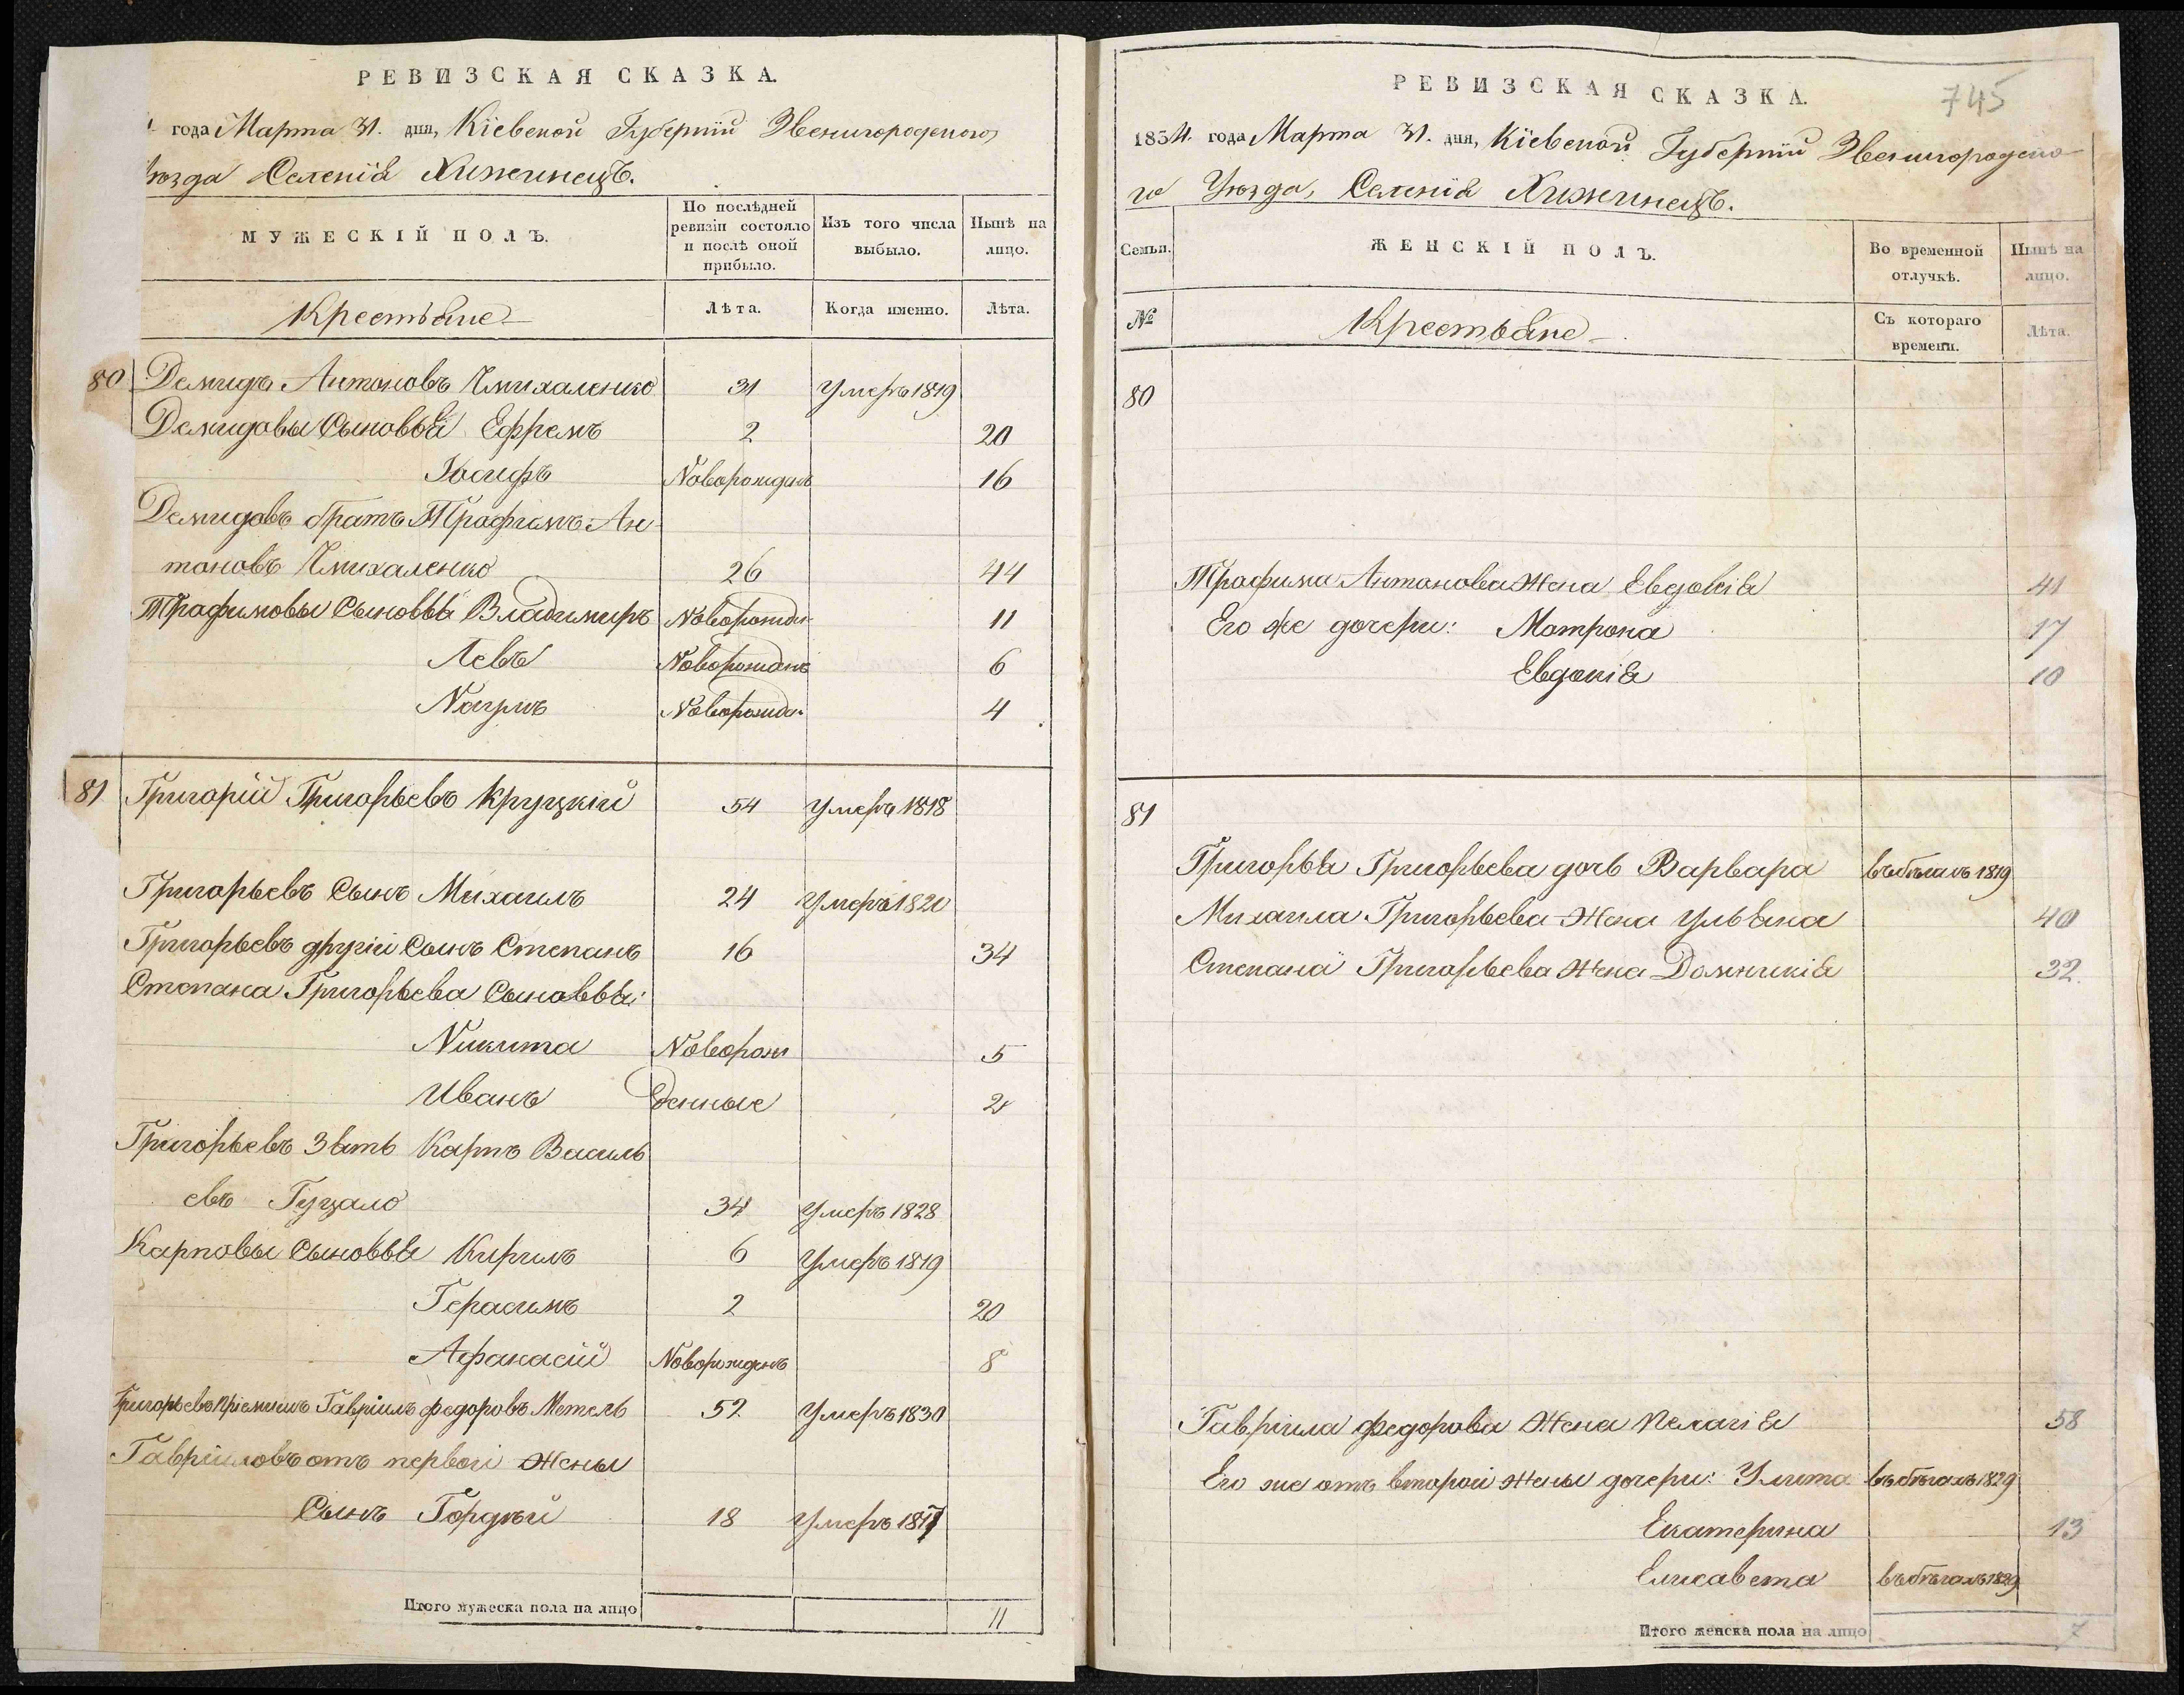 РЕВИЗСКАЯ СКАЗКА.
года Марта 31. дня, Кіевской Губерніи Звенигородского
Уѣзда Селенія Хижинецъ.
МУЖЕСКІЙ ПОЛЪ.
По послѣдней ревизіи состояло и послѣ оной прибыло.
Изъ того числа выбыло.
Нынѣ на лицо.
Крестьяне
Лѣта.
Когда именно.
Лѣта.
80 Демидъ Антоновъ Чмихаленко 31 Умеръ 1819
Демидовы Сыновья Ефремъ 2 20
Іосифъ Новорожденъ 16
Демидовъ братъ Трафимъ Ан
тоновъ Чмихаленко 26 44
Трафимовы Сыновья Владимиръ Новорожден 11
Левъ Новорожденъ 6
Наумъ Новорожде. 4
81 Григорій Григорьевъ Круцкій 54 Умеръ 1818
Григорьевъ Сынъ Михаилъ 24 Умеръ 1820
Григорьевъ другій Сынъ Степанъ 16 34
Степана Григорьева Сыновья:
Никита Новорож 5
Иванъ денные 2
Григорьевъ Зять Карпъ Василь
евъ Гуцало 34 Умеръ 1828
Карповы Сыновья Кирилъ 6 Умеръ 1819
Герасимъ 2 20
Афанасій Новорожденъ 8
Григорьевъ пріемишъ Гавріилъ Федоровъ Метель 52 Умеръ 1830
Гавріиловъ отъ первой жены
Сынъ Гордѣй 18 Умеръ 1817
Итого мужеска пола на лицо 11
745
РЕВИЗСКАЯ СКАЗКА.
1834. года Марта 31. дня, Кіевской Губерніи Звенигородско
го Уѣзда, Селенія Хижинецъ.
Семьи.
ЖЕНСКІЙ ПОЛЪ.
Во временной отлучкѣ.
Нынѣ на лицо.
№
Крестьяне
Съ котораго времени.
Лѣта.
80
Трафима Антонова жена Евдокія 41
Его же дочери: Мотрона 17
Евдокія 10
81
Григорья Григорьева дочь Варвара въ бѣгахъ 1819
Михаила Григорьева жена Ульяна 40
Степана Григорьева жена Домникія 32.
Гавріила Федорова жена Пелагія 58
Его же отъ второй жены дочери: Улита въ бѣгахъ 1829
Екатерина 13
Елисавета въ бѣгахъ 1829
Итого женска пола на лицо 7